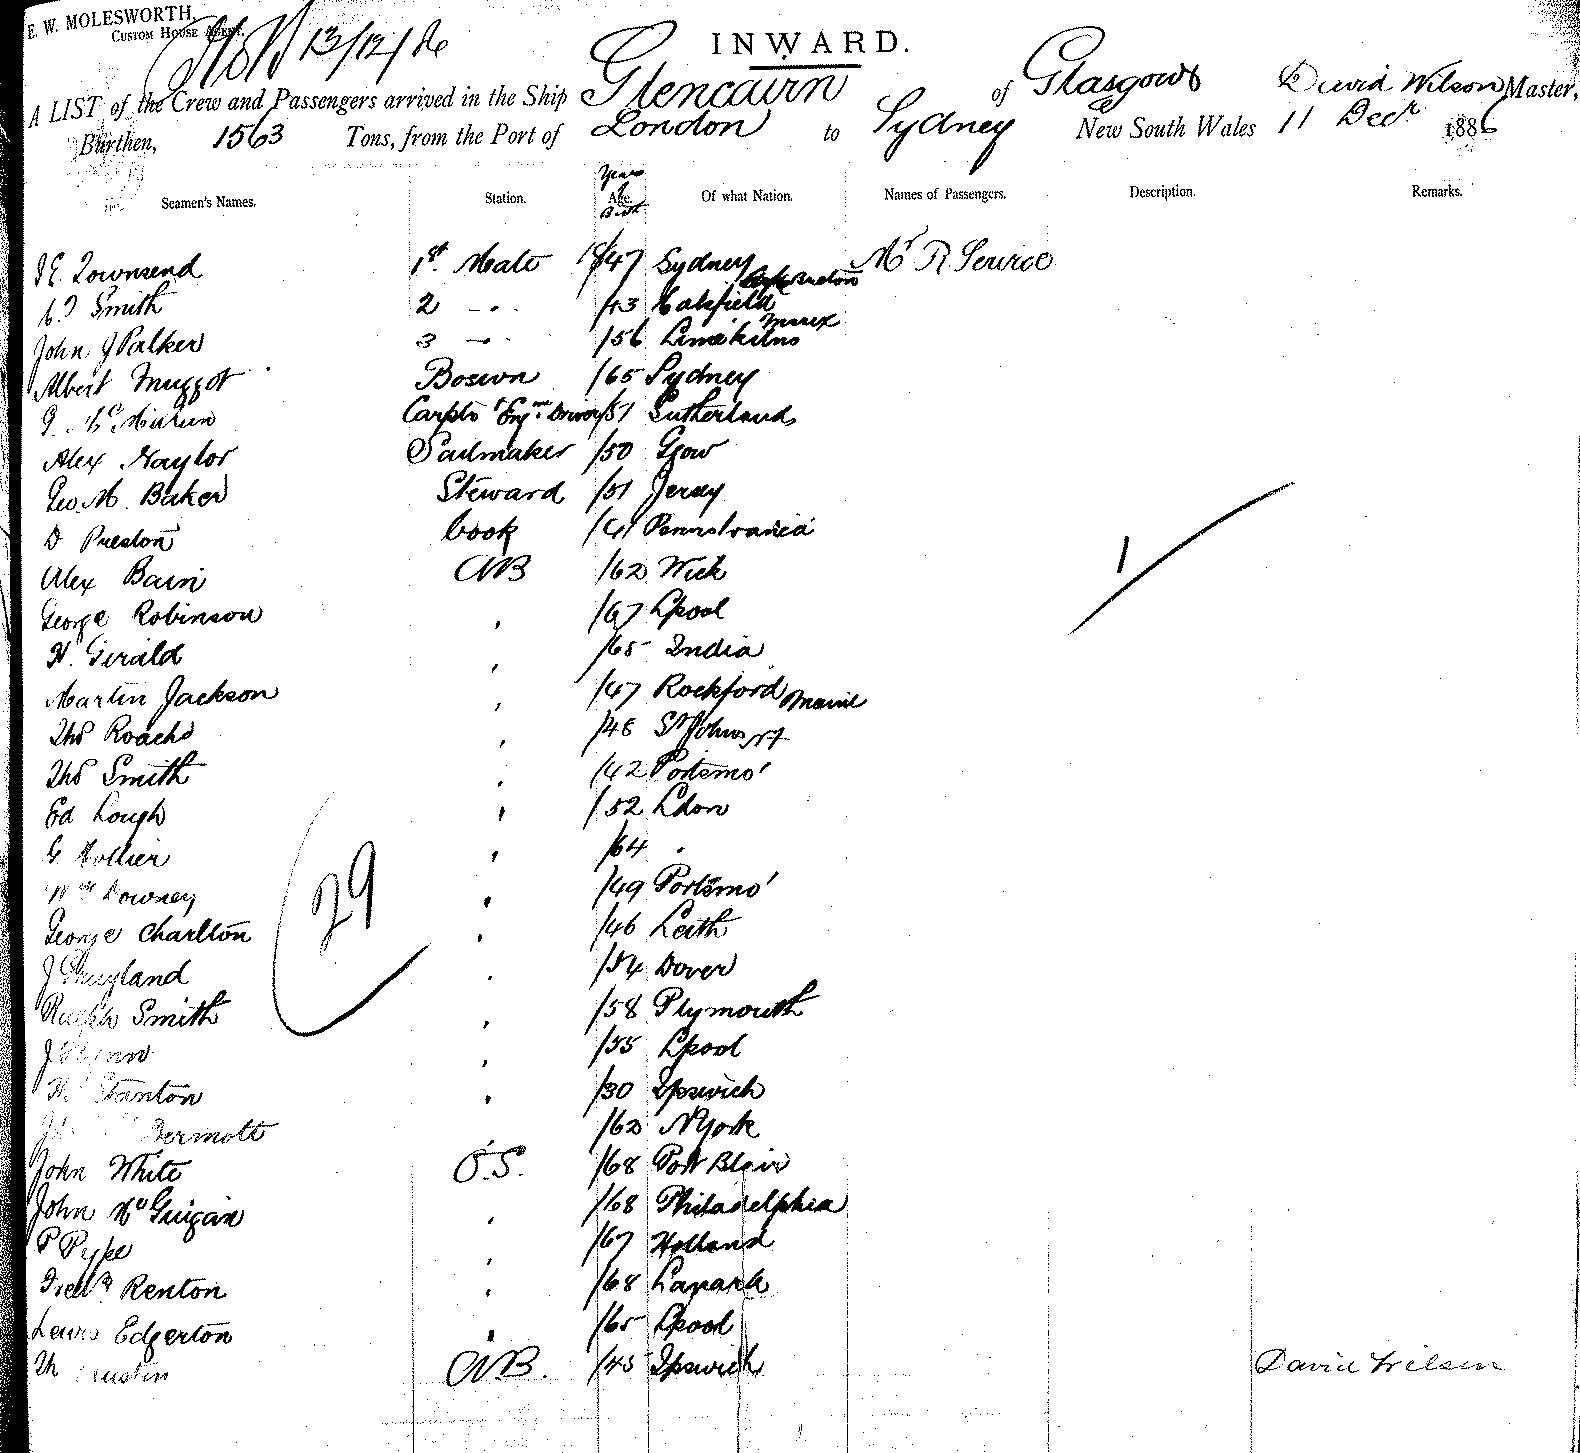 E. W. MOLESWORTH,
CUSTOM HOUSE AGENT.
13/12/86
INWARD.
A LIST of the Crew and Passengers arrived in the Ship Glencairn of Glasgow David Wilson Master,
Burthen, 1563 Tons, from the Port of London to Sydney New South Wales 11 Decr 1886
Years of Birth
Seamen's Names. Station. Age. Of what Nation. Names of Passengers. Description. Remarks.
J E Townsend 1st Mate 18/47 Sydney Mr R
Smith 2 /43
John J Parker 3 /56 Limekilns
Albert Boswn /65 Sydney
Carptr /51 Sutherland
Alex Naylor Sailmaker /50 Ggow
Geo. M. Baker Steward /51 Jersey
D Preston Cook Pennslvania
Alex Bain AB /62 Wick
George Robinson " /67 Lpool
H. Gerald " /65 India
Martin Jackson " /47 Rockford Maine
Thos Roach " /48 St Johns NF
Thos Smith " /42 Portsmo'
Ed Lough " /52 Ldon
G. Hollier " /64 "
Wm Downey " /49 Portsmo'
George Charlton " /46 Leith
J " /54 Dover
Ralph Smith " /58 Plymouth
J " /55 Lpool
Stanton " /30 Ipswich
Dermott " /62 N York
John White O.S. /68 Port Blair
John McGuigan " /68 Philadelphia
P Pyke " /67 Holland
Fredk Renton " /68 Lanark
Lewis Edgerton " /65 Lpool
Th Austin AB. /45 Ipswich David Wilson
29
1